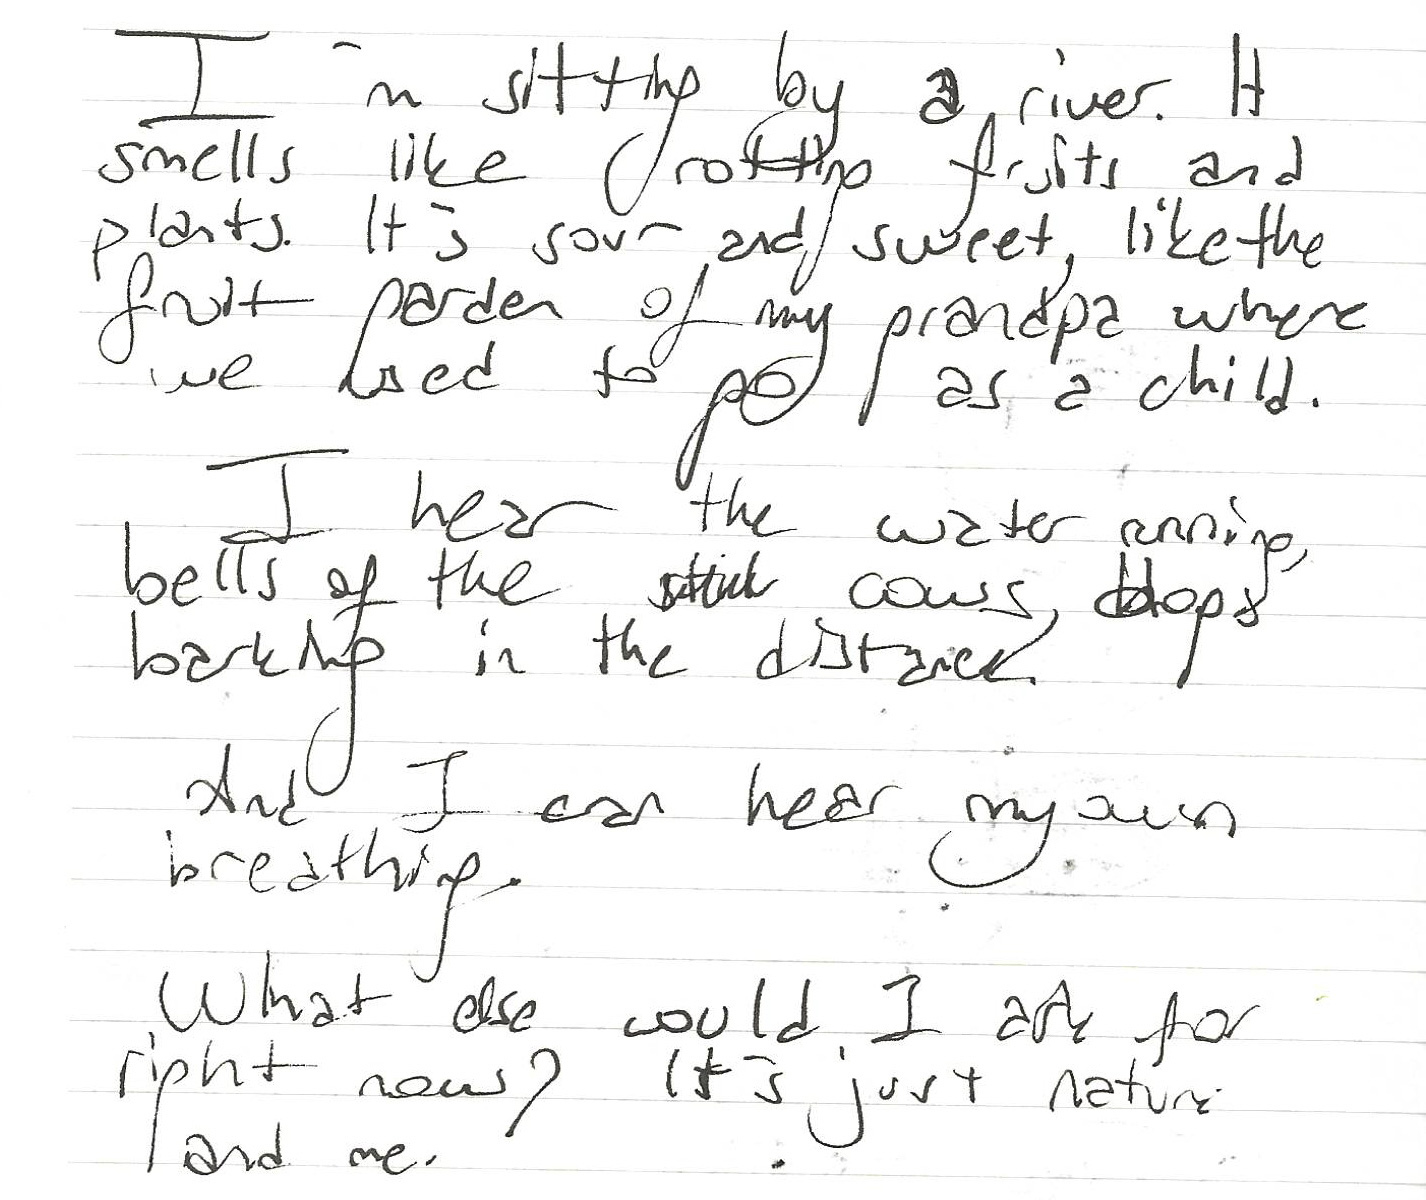 I'm sitting by a river. It
smells like rotting fruits and
plants. It's sour and sweet, like the
fruit garden of my grandpa where
we used to go as a child.
I hear the water running,
bells of the cows, dogs
barking in the distance.
And I can hear my own
breathing.
What else would I ask for
right now? It's just nature
and me.